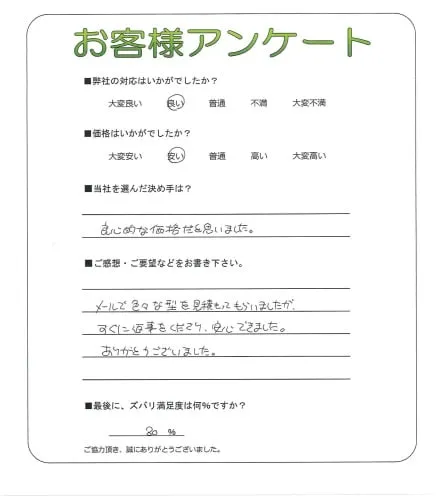 お客様アンケート
■弊社の対応はいかがでしたか?
大変良い 良い 普通 不満 大変不満
■価格はいかがでしたか?
大変安い 安い 普通 高い 大変高い
■当社を選んだ決め手は?
良心的な価格だと思いました。
■ご感想・ご要望などをお書き下さい。
メールで色々な型を見積もってもらいましたが、
すぐに返事をくださり、安心できました。
ありがとうございました。
■最後に、ズバリ満足度は何%ですか?
80 %
ご協力頂き、誠にありがとうございました。